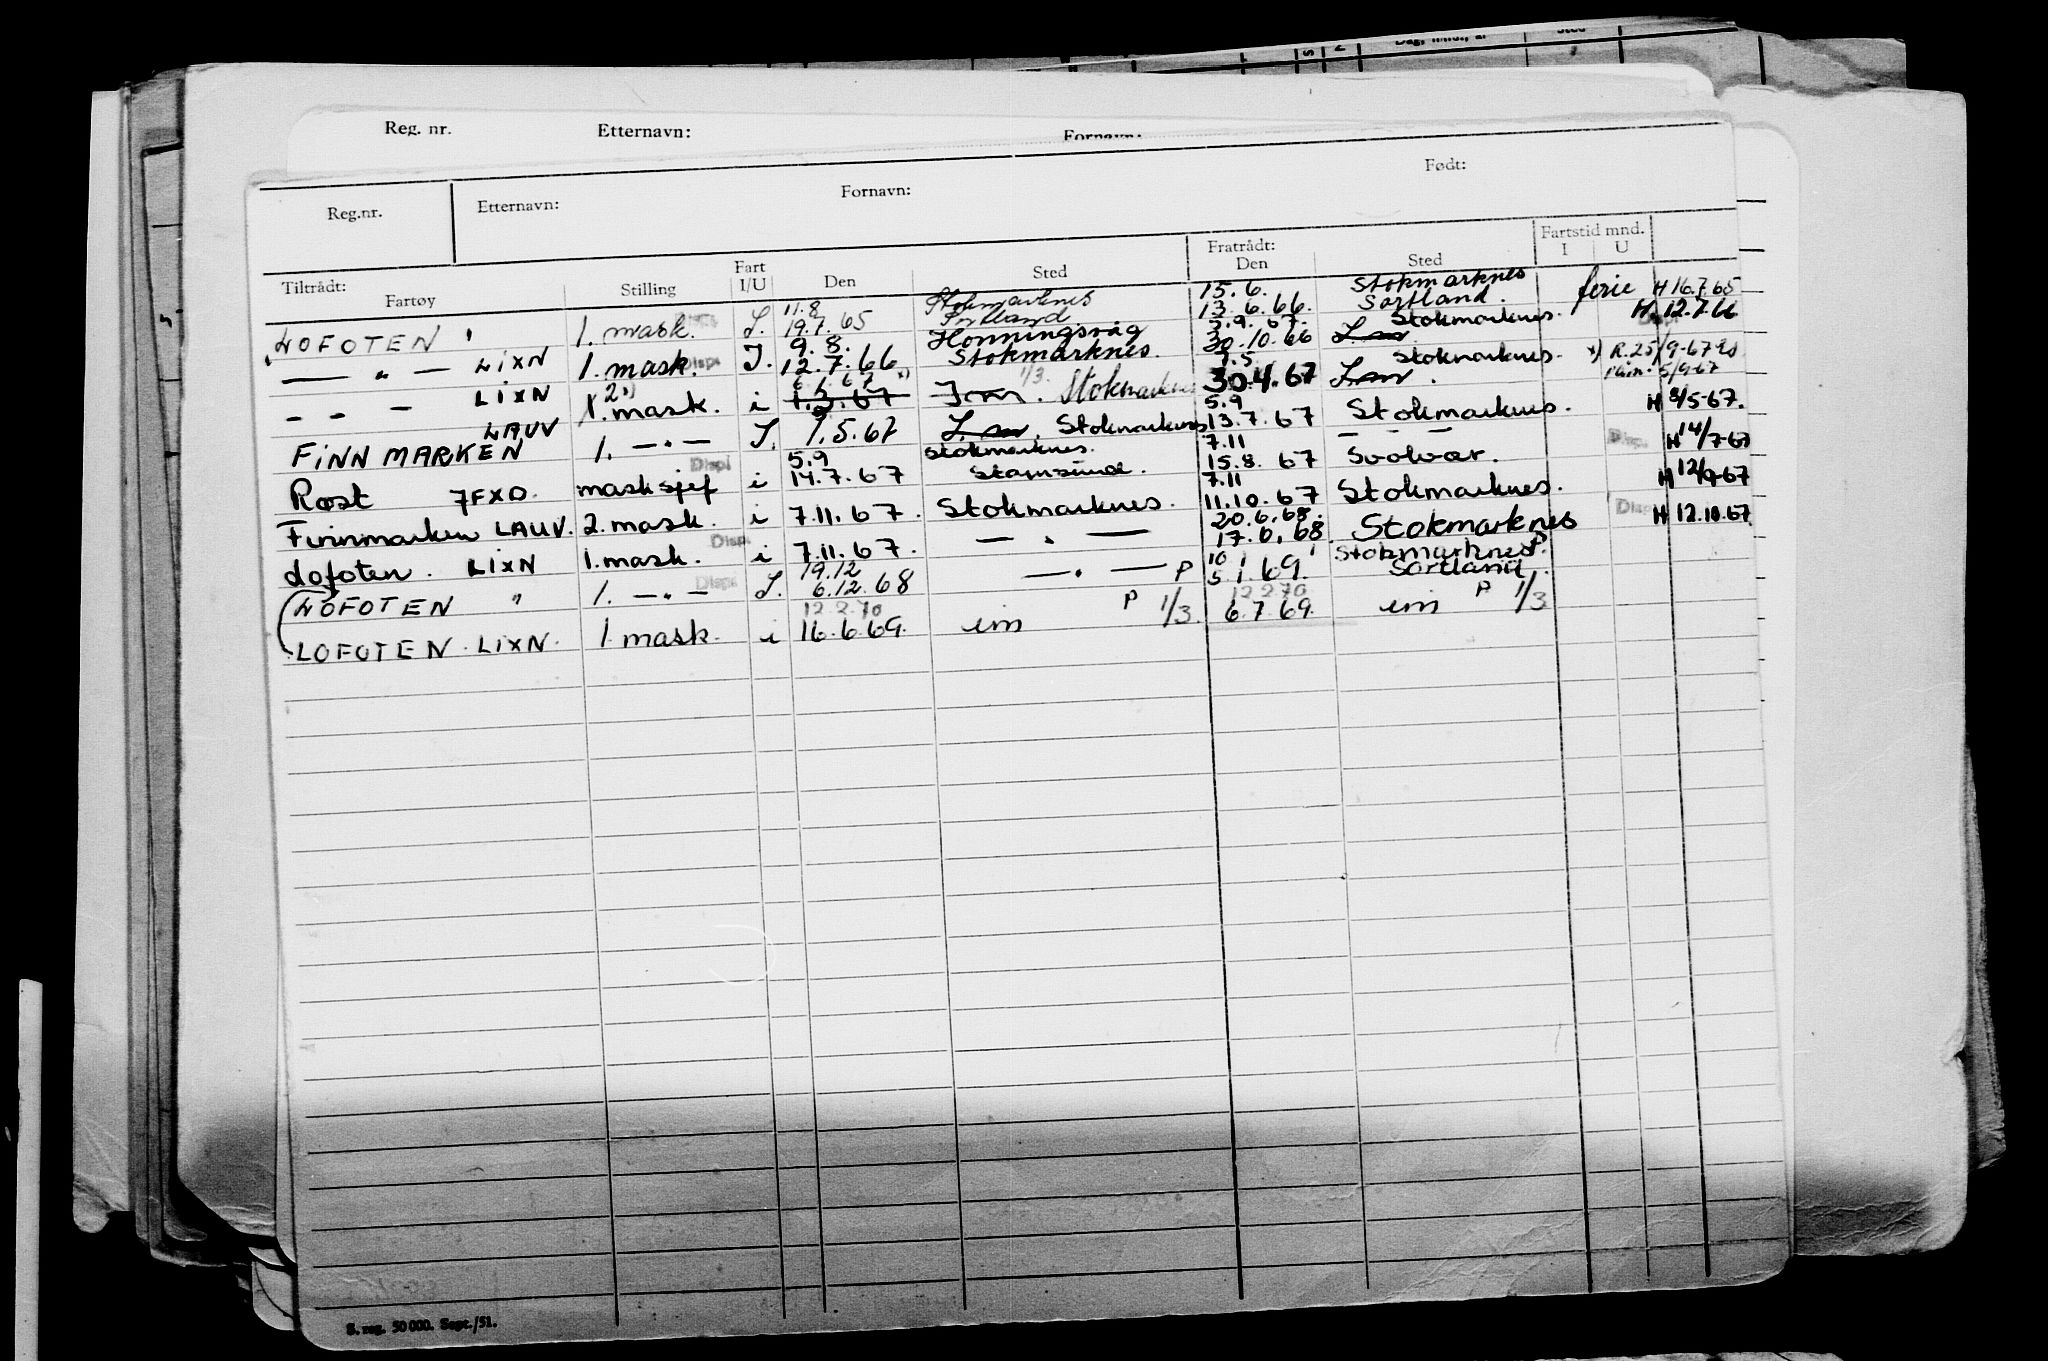 Dag, mnd., år Sted
Reg. nr. Etternavn: Fornavn:
Reg.nr. Etternavn: Fornavn: Født:
Tiltrådt: Fartøy Stilling Fart I/U Den Sted Fratrådt: Den Sted Fartstid mnd. I U
11.8 Stokmarknes 15.6. Stokmarknes
LOFOTEN 1. mask. I. 19.7.65 Sortland 13.6.66. Sortland. ferie H 16.7.65
9.8. Honningsvåg 3.9.67. Stokmarknes.
— " — LIXN 1. mask. Disp. I. 12.7.66 Stokmarknes. 30.10.66 H. 12.7.66
— — — LIXN 1. mask. i 1.3.67 x) Stokmarknes 30.4.67 Stokmarknes. x) R.25/9-67
FINNMARKEN LAUV 1. — " — I. 1.5.67 Stokmarknes 5.9 13.7.67 Stokmarknes. H 8/5-67.
5.9 Stokmarknes. 7.11 — — —
Røst JFXO. masksjef i 14.7.67 Stamsund. 15.8.67 Svolvær. Disp. H 14/7-67
7.11
Finnmarken LAUV. 2. mask. i 7.11.67. Stokmarknes. 11.10.67 Stokmarknes. H 12/9-67
20.6.68.
Lofoten. LIXN 1. mask. Disp. i 7.11.67. — " — 17.6.68. Stokmarknes Disp. H 12.10.67
19.12 10 Stokmarknes P
LOFOTEN " 1. — " — Disp. I. 6.12.68 — " — P 5.1.69. Sortland.
12.2.70 P 1/3. 12.2.70 P 1/3
LOFOTEN. LIXN. 1 mask. i 16.6.69. im 6.7.69. im
S. reg. 50 000. Sept./51.